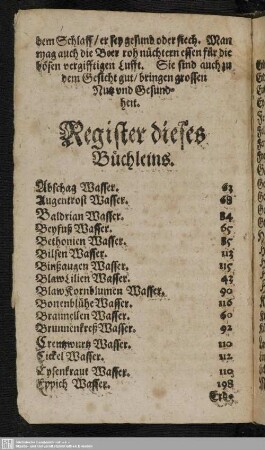 dem Schlaff/ er sey gesund oder siech. Man
mag auch die Beer roh nüchtern essen für die
bösen vergifftigen Lufft. Sie sind auch zu
dem Gesicht gut/ bringen grossen
Nutz vnd Gesund-
heit.
Register dieses
Büchleins.
Abschag Wasser. 63
Augentrost Wasser. 68
Baldrian Wasser. 84
Beyfuß Wasser. 65
Bethonien Wasser. 85
Bilsen Wasser. 113
Binßaugen Wasser. 115
Blaw Lilien Wasser. 43
Blaw Kornblumen Wasser. 90
Bonenblühe Wasser. 116
Braunellen Wasser. 60
Brunnenkreß Wasser. 92
Creutzwurtz Wasser. 110
Cickel Wasser. 112
Eysenkraut Wasser. 110
Eppich Wasser. 198
Erd-